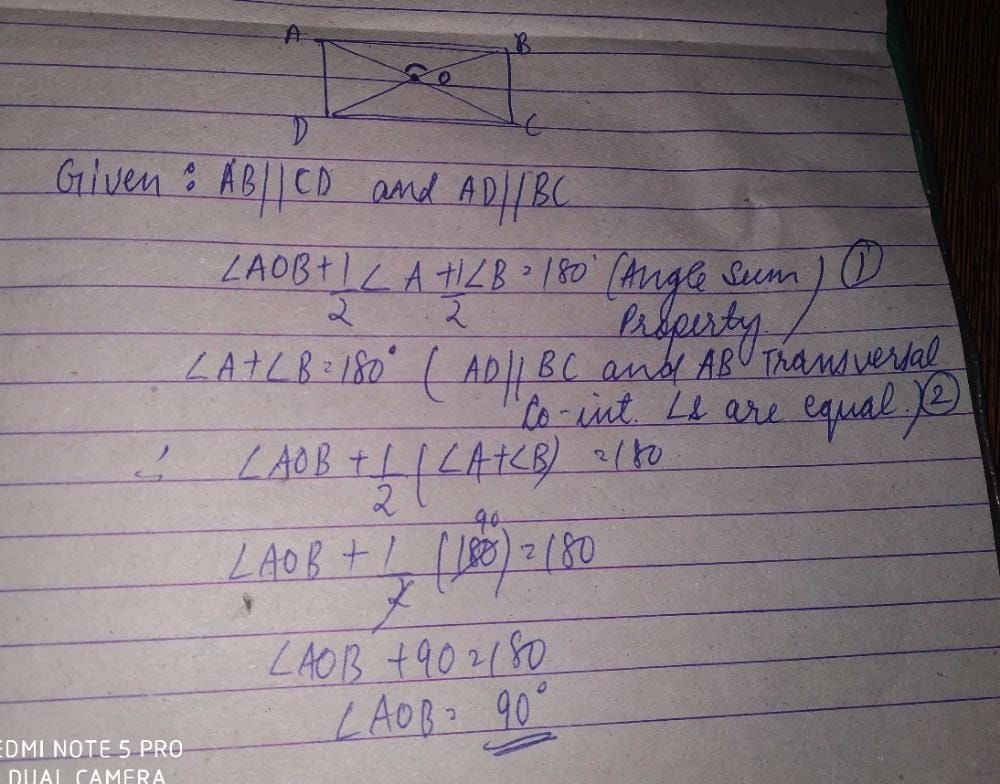 A B
O
D C
Given : AB||CD and AD||BC
∠AOB + 1/2 ∠A + 1/2 ∠B = 180° (Angle Sum Property) ①
∠A + ∠B = 180° ( AD||BC and AB Transversal
Co-int. ∠s are equal.) ②
∴ ∠AOB + 1/2 (∠A + ∠B) = 180
90
∠AOB + 1/2 (180) = 180
∠AOB + 90 = 180
∠AOB = 90°
EDMI NOTE 5 PRO
DUAL CAMERA